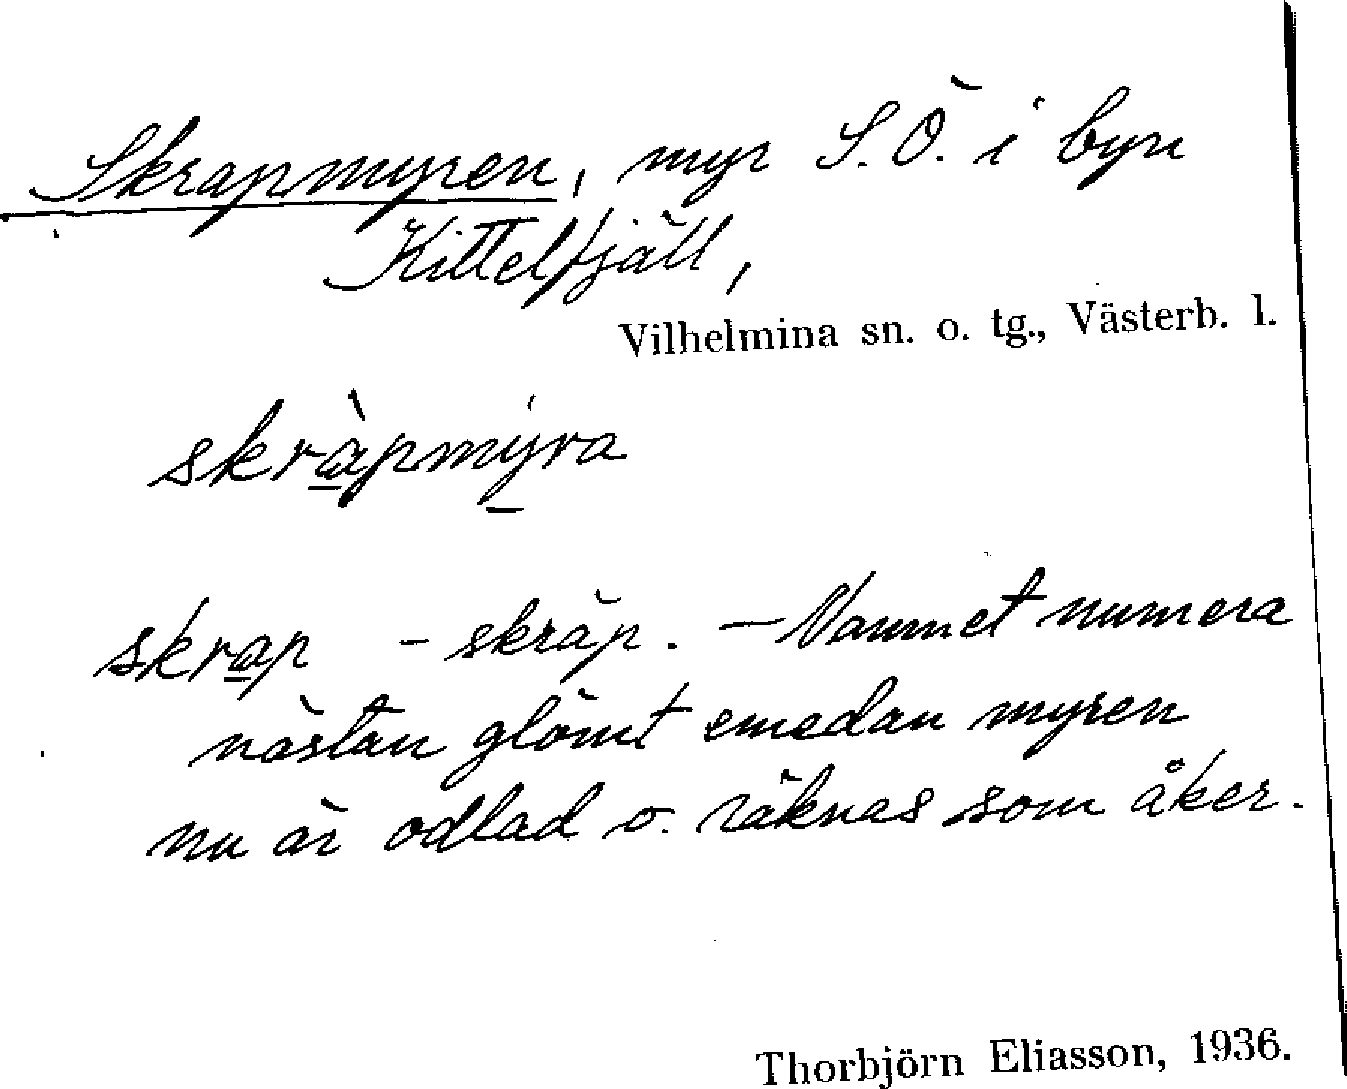 Skrapmyren, myr S.Ö. i byn
Kittelfjäll,
Vilhelmina sn. o. tg., Västerb. l.
skràpmyra
skrap - skräp. – Namnet numera
nästan glömt emedan myren
nu är odlad o. räknas som åker.
Thorbjörn Eliasson, 1936.